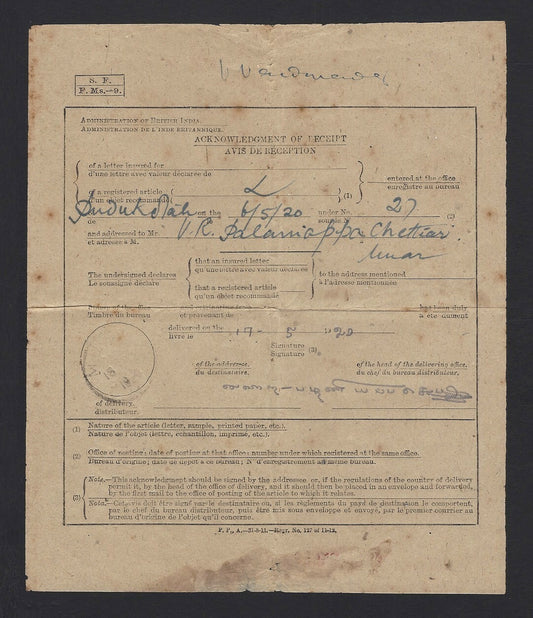 S. F.
F. Ms.—9.
ADMINISTRATION OF BRITISH INDIA.
ADMINISTRATION DE L'INDE BRITANNIQUE.
ACKNOWLEDGMENT OF RECEIPT
AVIS DE RÉCEPTION
of a letter insured for
d'une lettre avec valeur déclarée de
entered at the office
enregistré au bureau
of a registered article
d'un objet recommandé
L
(1)
on the 6/5/20 under No. 27 (2)
de
and addressed to Mr. V.R. Palaniappa Chettiar
et adressé à M.
The undersigned declares
Le soussigné déclare
that an insured letter
qu'une lettre avec valeur déclarée
that a registered article
qu'un objet recommandé
to the address mentioned
à l'adresse mentionnée
Timbre du bureau
et provenant de
has been duly
a été dûment
delivered on the
livré le
17 - 5 1920
Signature
Signature (3)
of the addressee.
du destinataire.
of the head of the delivering office.
du chef du bureau distributeur.
of delivery.
distributeur.
(1) Nature of the article (letter, sample, printed paper, etc.).
Nature de l'objet (lettre, échantillon, imprimé, etc.).
(2) Office of posting; date of posting at that office; number under which registered at the same office.
Bureau d'origine; date de dépôt à ce bureau; N° d'enregistrement au même bureau.
(3) Note.—This acknowledgment should be signed by the addressee or, if the regulations of the country of delivery
permit it, by the head of the office of delivery, and it should then be placed in an envelope and forwarded,
by the first mail to the office of posting of the article to which it relates.
Note.—Cet avis doit être signé par le destinataire ou, si les règlements du pays de destination le comportent,
par le chef du bureau distributeur, puis être mis sous enveloppe et envoyé, par le premier courrier au
bureau d'origine de l'objet qu'il concerne.